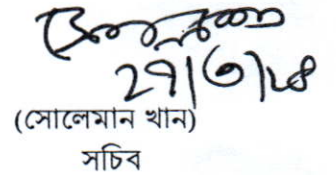 ২৭/৩/২৪
(সোলেমান খান)
সচিব